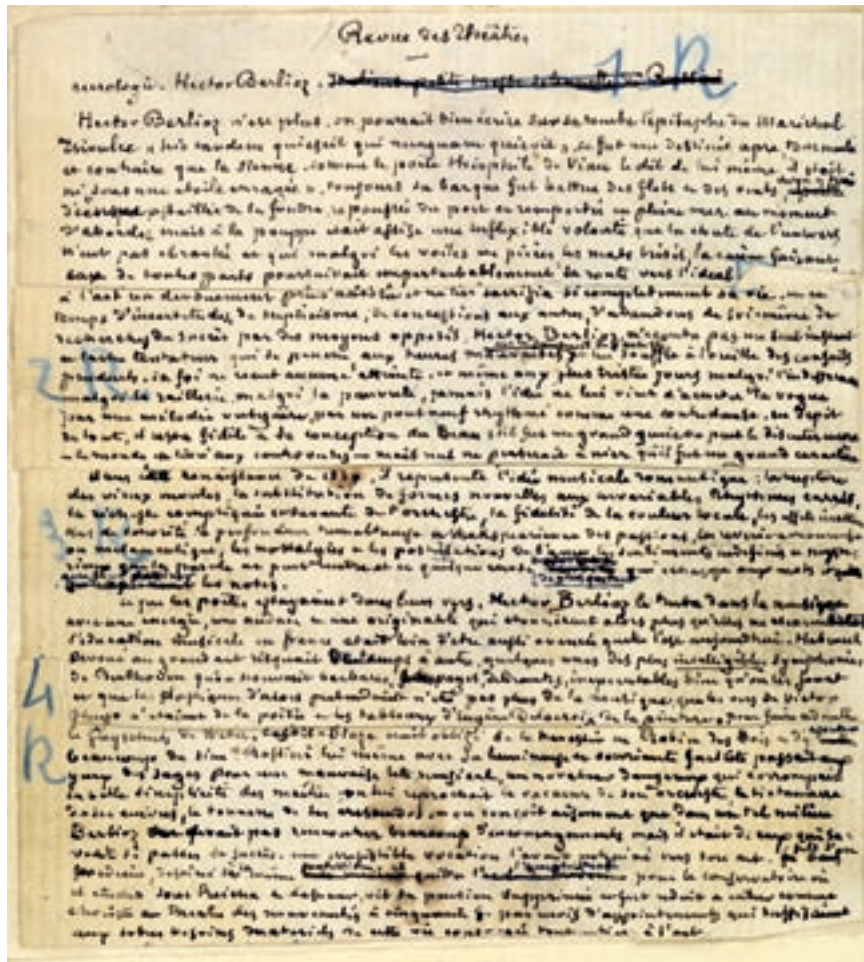 Revue des Théâtres
necrologie. Hector Berlioz.
1 R
Hector Berlioz n'est plus, on pourrait bien écrire sur sa tombe l'épitaphe du Maréchal
Trivulce « hic tandem quiescit qui nunquam quievit » ce fut une destinée apre, tourmentée
et contraire que la sienne. comme le poète théophile de Viau le dit de lui même, il était
né sous une étoile enragée », toujours sa barque fut battue des flots et des vents,
de la foudre, repoussée du port et remportée en pleine mer au moment
d'aborder, mais à la pouppe était assise une inflexible volonté que la chute de l'univers
n'eut pas ébranlée et qui malgré les voiles en pièces les mats brisés, la carène faisant
eau de toutes parts poursuivait imperturbablement sa route vers l'idéal
à l'art un dévouement plus et ne lui sacrifia si complètement sa vie. en ce
temps d'incertitudes, de scepticisme, de concessions aux autres, d'abandons de soi-même de
recherche du succès par des moyens opposés, Hector Berlioz n'écouta pas un seul instant
ce lache tentateur qui se penche aux heures mauvaises et lui souffle à l'oreille des conseils
2 R
prudents. sa foi ne reçut aucune atteinte. et même aux plus tristes jours malgré l'indifférence
malgré la raillerie, malgré la pauvreté, jamais l'idée ne lui vint d'acheter la vogue
par une mélodie vulgaire, par un pont neuf rhythmé comme une contredanse. en dépit
de tout, il resta fidèle à sa conception du Beau s'il fut un grand génie on peut le discuter encore
le monde est livré aux controverses mais nul ne penserait à nier qu'il fut un grand caractère
dans cette renaissance de 1830, il représente l'idée musicale romantique ; la rupture
des vieux moules, la substitution de formes nouvelles aux invariables rhythmes carrés,
la richesse compliquée et savante de l'orchestre, la fidélité de la couleur locale, les effets inattendus
3 R
de sonorité la profondeur tumultueuse et shakspearienne des passions, les rêveries amoureuses
ou mélancoliques, les nostalgies et les postulations de l'ame, les sentiments indéfinis et mystérieux
que la parole ne peut rendre et ce quelque chose qui échappe aux mots et que
les notes.
ce que les poètes essayaient dans leurs vers, Hector Berlioz le tenta dans la musique
avec une énergie, une audace et une originalité qui étonnèrent alors plus qu'elles ne charmèrent
l'éducation musicale en france était loin d'être aussi avancée qu'elle l'est aujourd'hui. Habeneck
dévoué au grand art risquait de temps à autre, quelques unes des plus inintelligibles symphonies
de Beethoven qu'on nommait barbares, sauvages, délirantes, inexécutables bien qu'on les jouât
4 R
et que les classiques d'alors prétendaient n'être pas plus de la musique que les vers de Victor
Hugo n'étaient de la poésie et les tableaux d'Eugène Delacroix de la peinture. pour faire admettre
le Freyschutz de Weber, Castil-Blaze était obligé de le travestir en Robin des Bois et d'y
beaucoup du sien. Rossini lui même avec sa lumineuse et souriante facilité passait aux
yeux des sages pour une mauvaise tête musicale, un novateur dangereux qui corrompait
la belle simplicité des maîtres. on lui reprochait le vacarme de son orchestre, le tintamarre
de ses cuivres, le tonnerre de ses crescendos. on conçoit aisément que dans un tel milieu
Berlioz ne devait pas rencontrer beaucoup d'encouragements mais il était de ceux qui savent
se passer de succès. une irrésistible vocation l'avait poussé vers son art.
pour le conservatoire où
il étudia sous Reicha et Lesueur, vit sa pension supprimée et fut réduit à entrer comme
choriste au théatre des nouveautés à cinquante fr par mois d'appointements qui suffisaient
aux sobres besoins matériels de cette vie consacrée tout entière à l'art